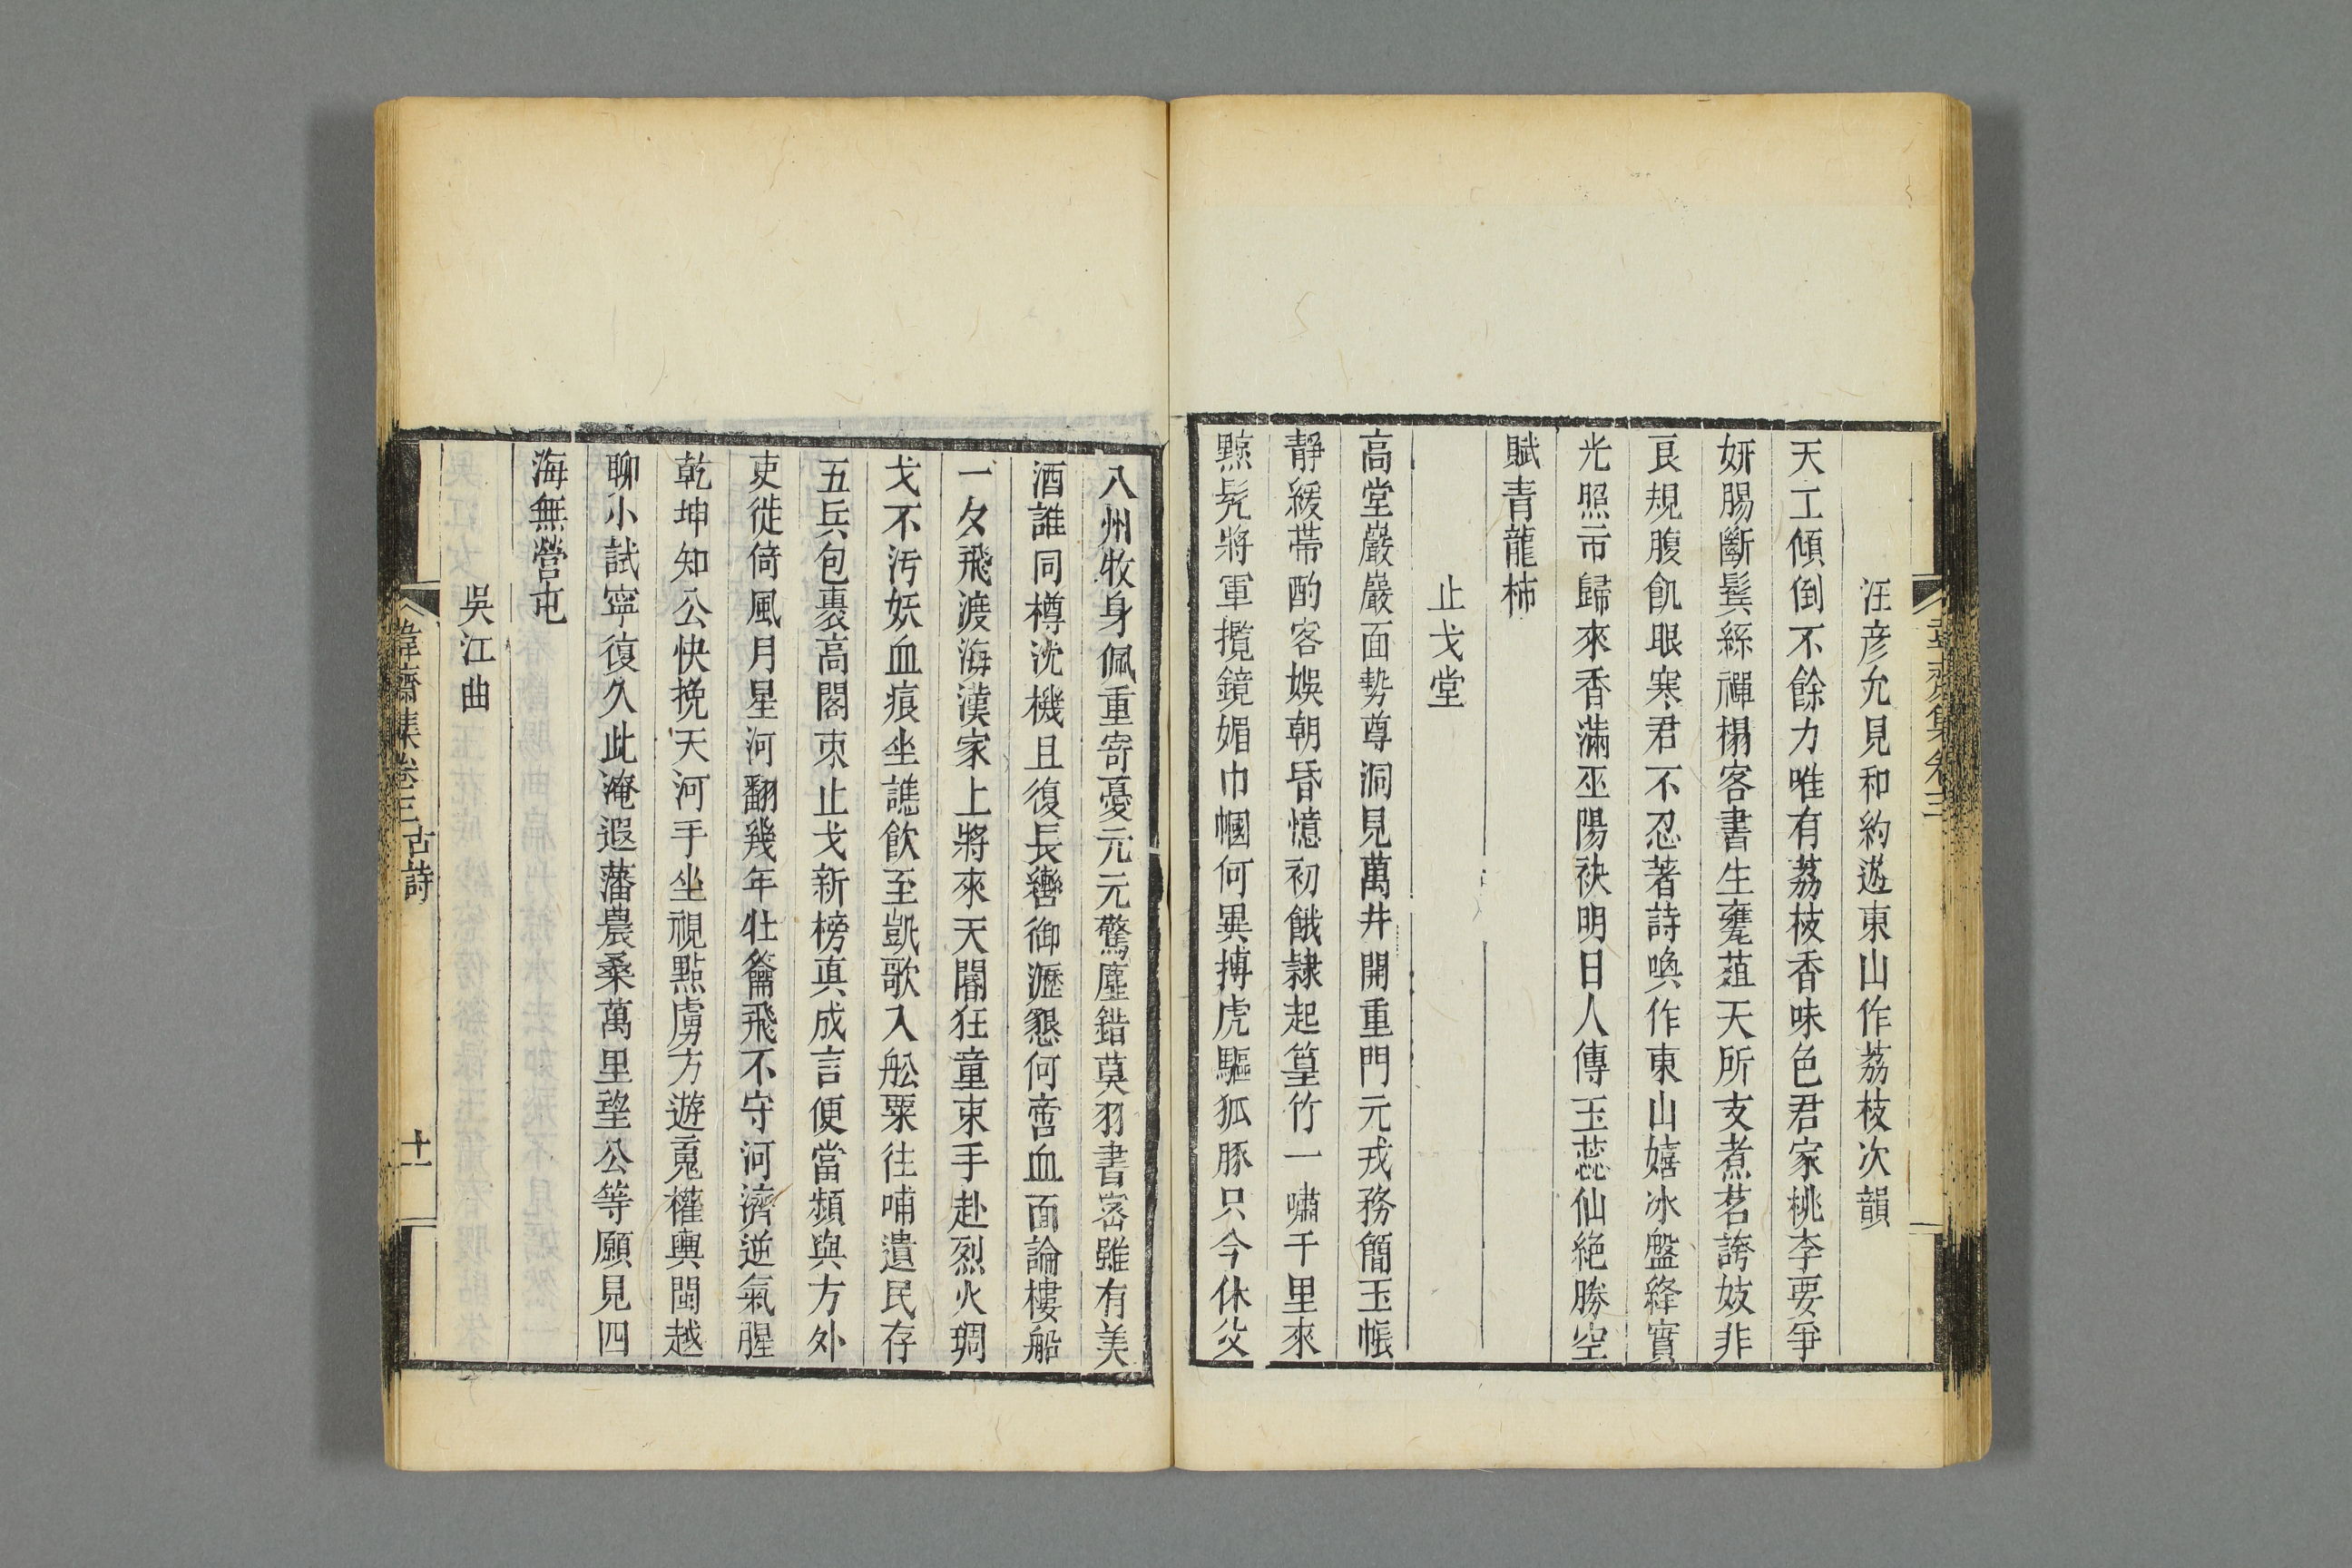 韋齋集卷三
汪彦允見和約遊東山作荔枝次韻
天工傾倒不餘力唯有荔枝香味色君家桃李要爭
妍腸斷鬓絲禪榻客書生甕葅天所支煮茗誇妓非
良規腹飢眼寒君不忍著詩喚作東山嬉冰盤絳實
光照市歸來香滿巫陽袂明日人傳玉蕊仙絶勝空
賦青龍柿
止戈堂
高堂巖巖面勢尊洞見萬井開重門元戎務簡玉帳
靜緩帶酌客娛朝昏憶初餓隸起篁竹一嘯千里來
黥髡將軍攬鏡媚巾幗何異搏虎驅狐豚只今休父
八州牧身佩重寄憂元元驚塵錯莫羽書密雖有美
酒誰同樽沈機且復長轡御瀝懇何啻血面論樓船
一夕飛渡海漢家上將來天閽狂童束手赴烈火琱
戈不汚妖血痕坐譙飲至凱歌入舩粟往哺遺民存
五兵包裹高閣束止戈新榜真成言便當頻與方外
吏徙倚風月星河翻幾年牡籥飛不守河濟逆氣腥
乾坤知公快挽天河手坐視黠虜方遊䰟權輿閩越
聊小試寜復久此淹遐藩農桑萬里望公等願見四
海無營屯
吳江曲
韋齋集卷三 古詩 十一